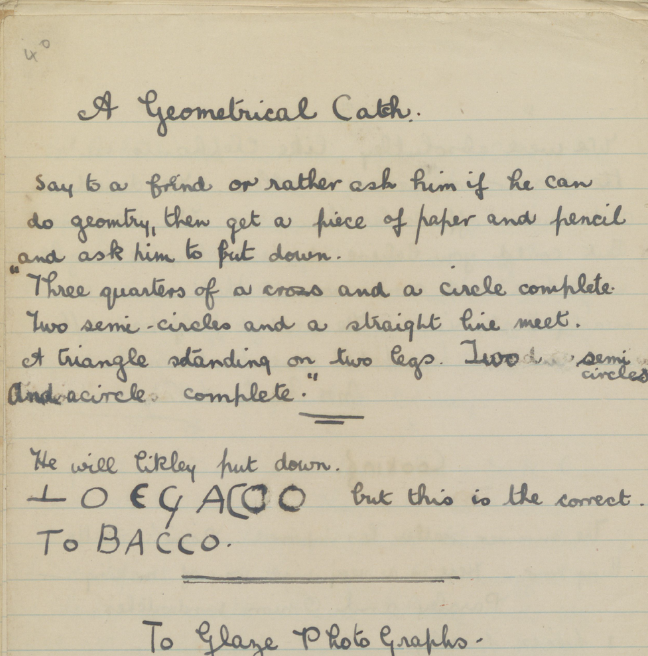 40
A Geometrical Catch.
Say to a frind or rather ask him if he can
do geomtry, then get a piece of paper and pencil
and ask him to put down.
"Three quarters of a cross and a circle complete
Two semi-circles and a straight line meet.
A triangle standing on two legs. Two semi
circles
And a circle complete."
He will likley put down.
⊥ O E G A C O O but this is the correct.
To BACCO.
To Glaze Photo Graphs.